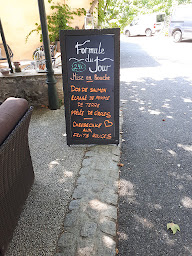 Formule
du Jour
Mise en Bouche
Dos de Saumon
Ecrasé de Pomme
de Terre
Cheesecake
aux
Fruits Rouges